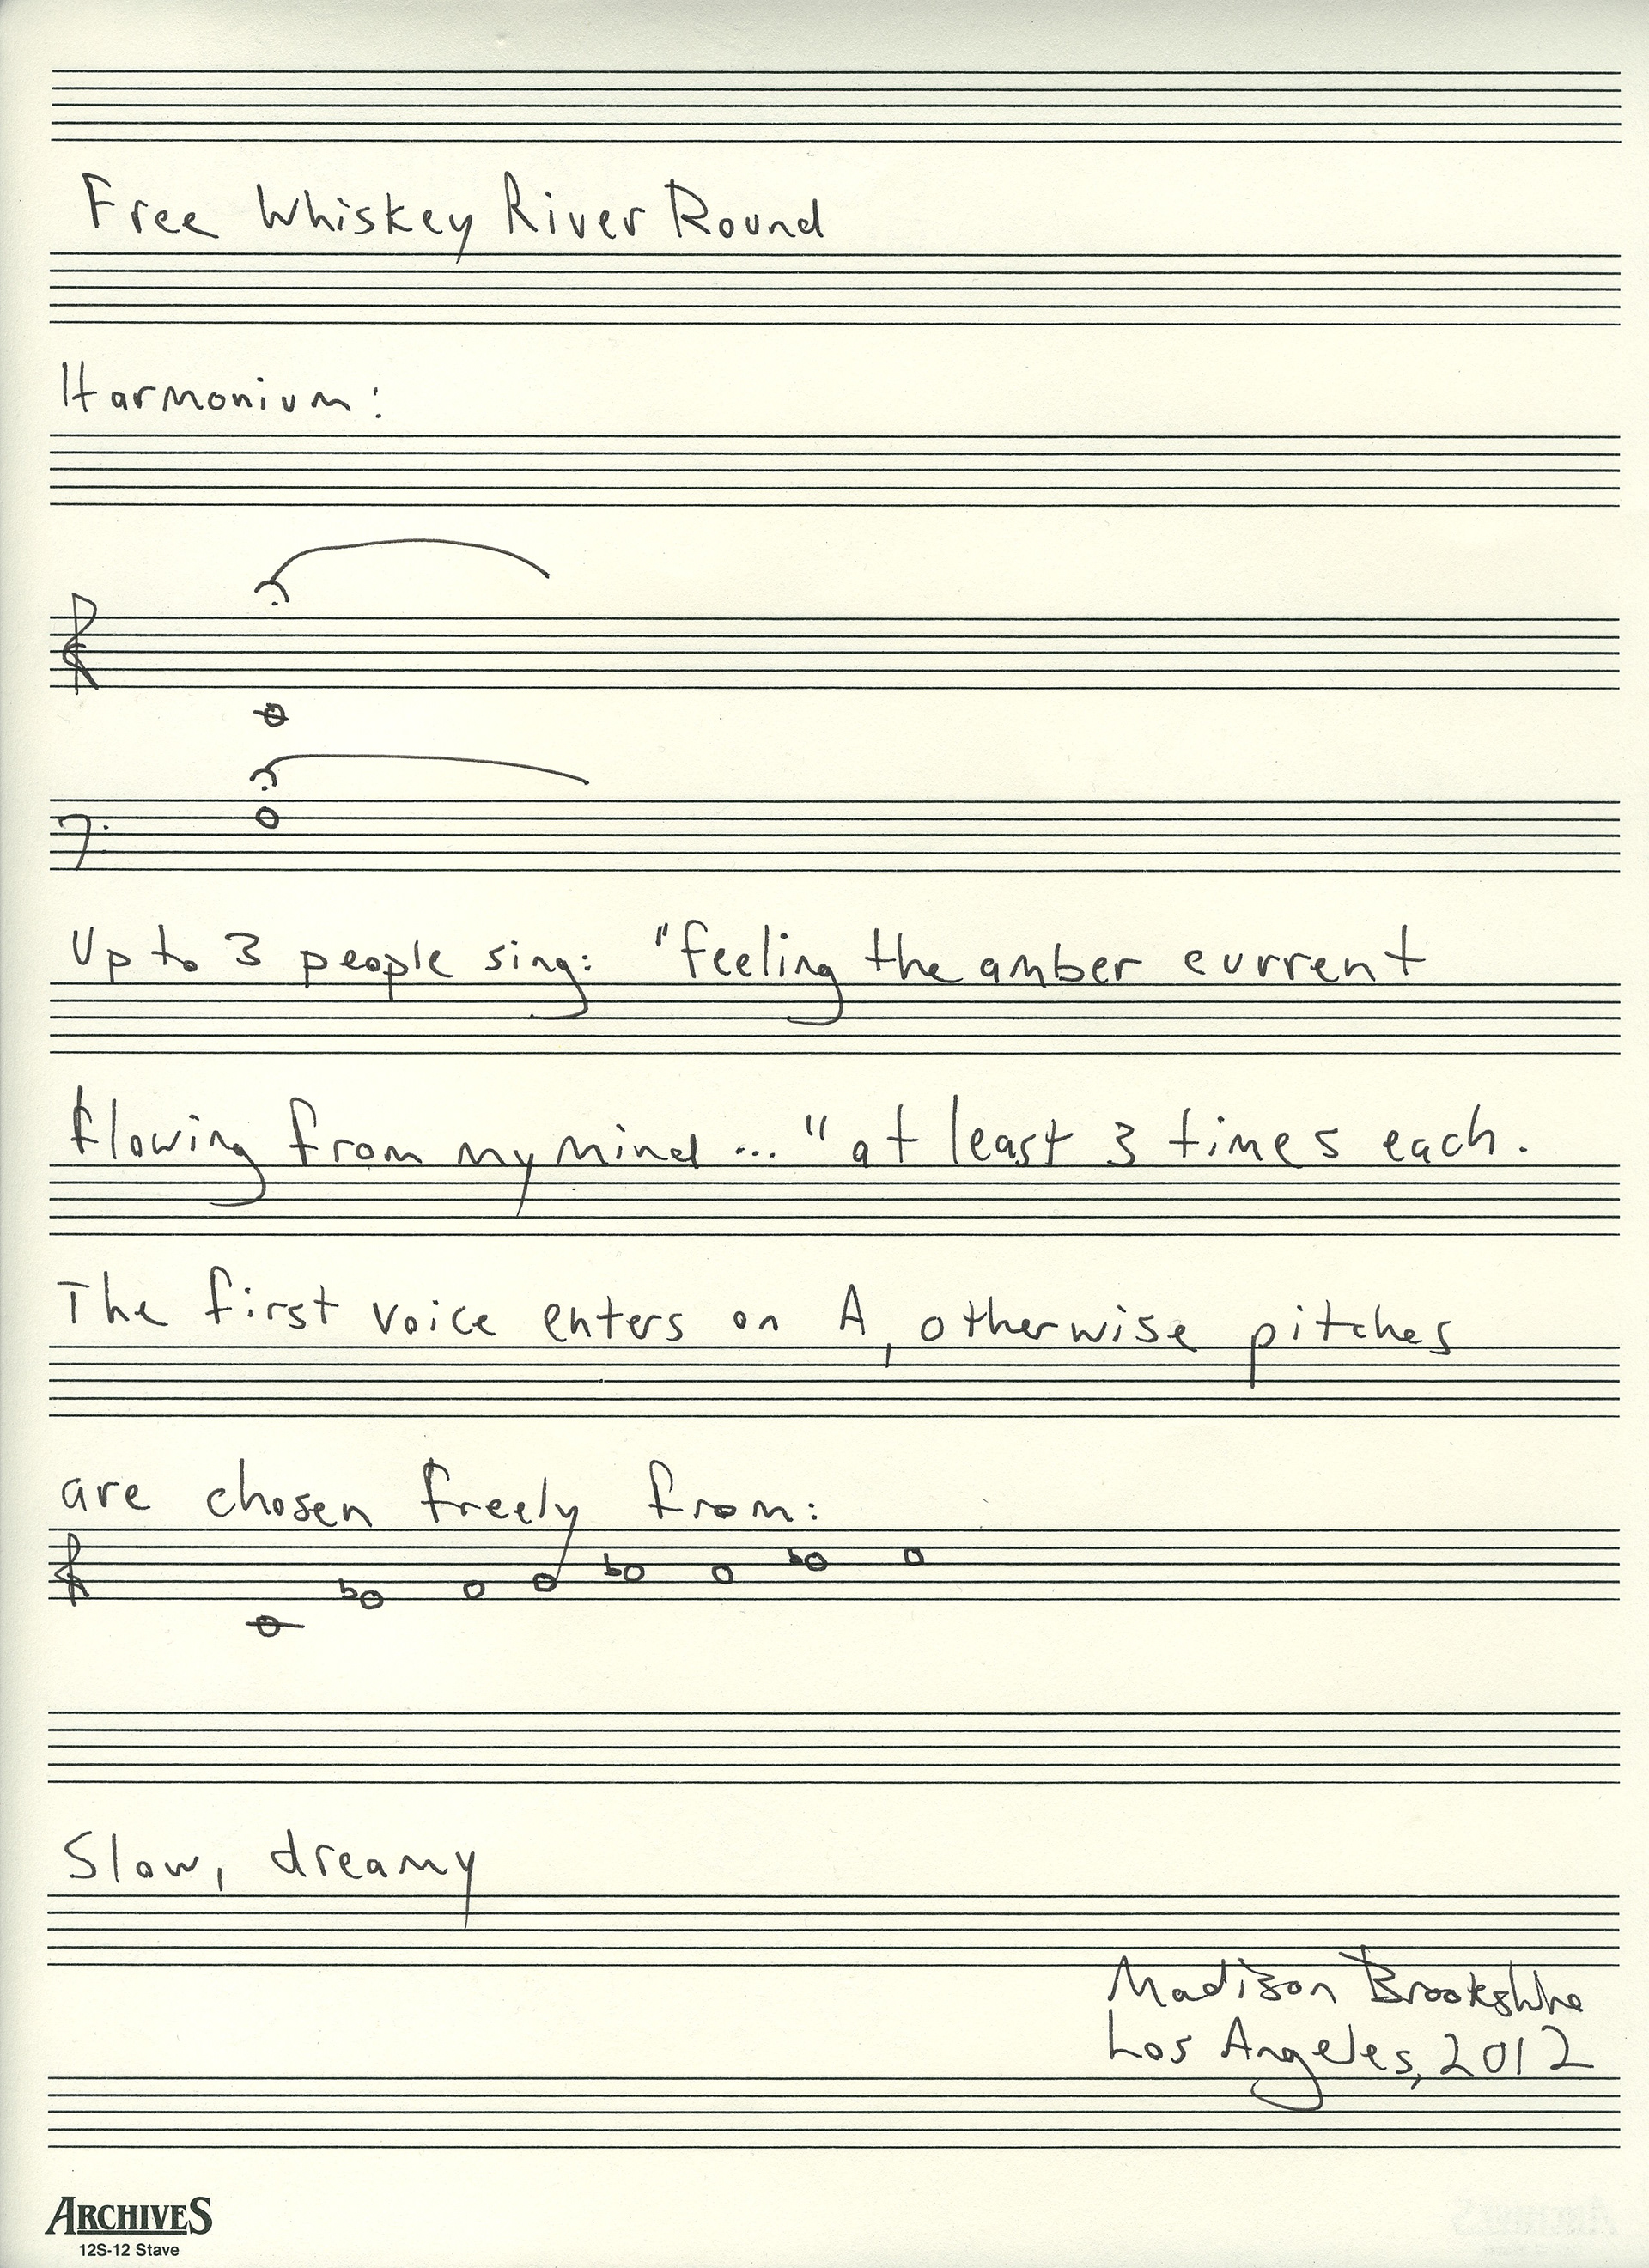 Free Whiskey River Round
Harmonium:
Up to 3 people sing: "feeling the amber current
flowing from my mind ..." at least 3 times each.
The first voice enters on A, otherwise pitches
are chosen freely from:
Slow, dreamy
Madison Brookshire
Los Angeles, 2012
ARCHIVES
12S-12 Stave